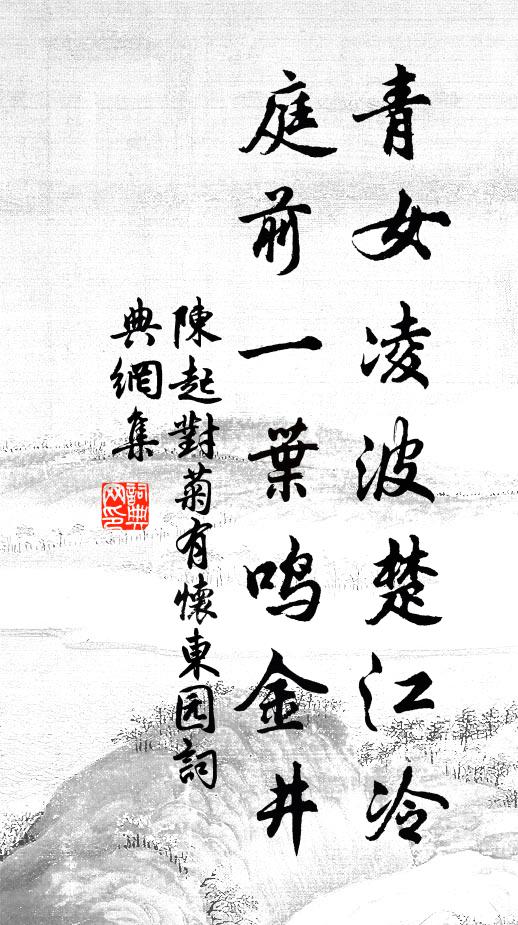 青女凌波楚江冷
庭前一葉鸣金井
陳起對菊有懷東园詞
典網集
詞典
网印